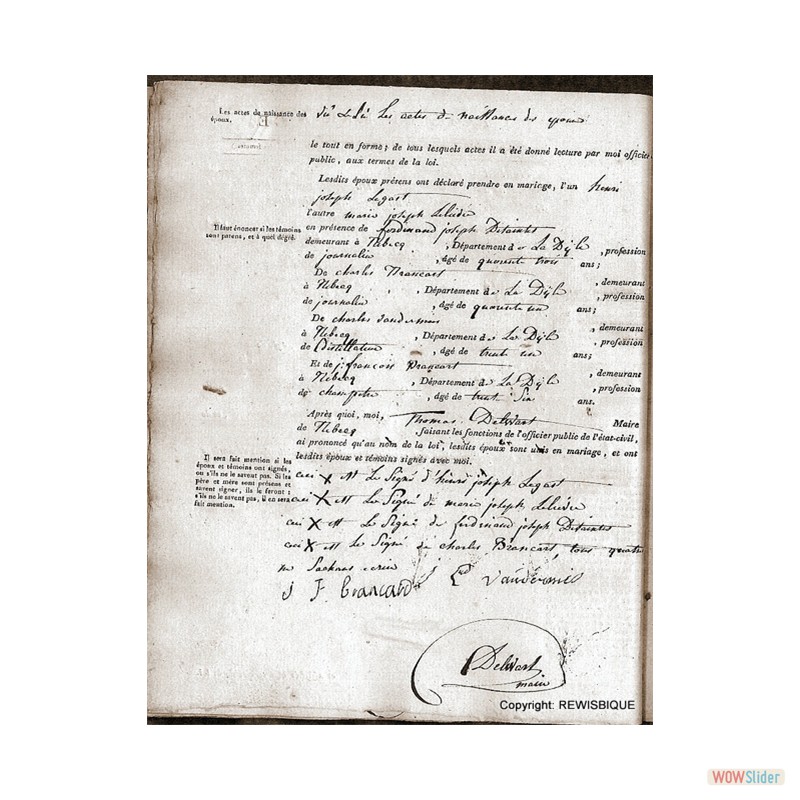 Les actes de naissance des époux.
Vu et Lu Les actes de naissances des époux
le tout en forme; de tous lesquels actes il a été donné lecture par moi officier
public, aux termes de la loi.
Lesdits époux présens ont déclaré prendre en mariage, l'un henri
joseph Legast
l'autre marie joseph
Il faut énoncer si les témoins
sont parens, et à quel dégré.
en présence de ferdinand joseph
demeurant à , Département de La Dÿle , profession
de journalier , âgé de quarente trois ans;
De charles Brancart , demeurant
à , Département de La Dÿle , profession
de journalier , âgé de quarente un ans;
De charles , demeurant
à , Département de La Dÿle , profession
de Distillateur , âgé de trente un ans;
Et de j. françois Brancart , demeurant
à , Département de La Dÿle , profession
de champetre , âgé de trente Six ans.
Après quoi, moi, Thomas Delwart Maire
de , faisant les fonctions de l'officier public de l'état-civil,
ai prononcé qu'au nom de la loi, lesdits époux sont unis en mariage, et ont
lesdits époux et témoins signés avec moi.
Il sera fait mention si les
époux et témoins ont signés,
ou s'ils ne le savent pas. Si les
père et mère sont présens et
savent signer, ils le feront;
s'ils ne le savent pas, il en sera
fait mention.
ceci X est Le Signé d'henri joseph Legast
ceci X est Le Signé de marie joseph
ceci X est Le Signé de ferdinand joseph
ceci X est Le Signé de charles Brancart, tous quatre
ne Sachans écrire
J F brancart
Delwart
maire
Copyright: REWISBIQUE
WOWSlider